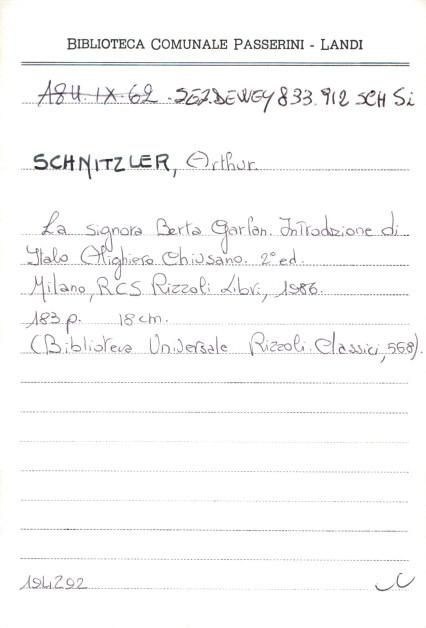 BIBLIOTECA COMUNALE PASSERINI - LANDI
A84.IX.62 - SEZ.DEWEY 833.912 SCH Si
SCHNITZLER, Arthur.
La signora Berta Garlan. Introdzione di
Italo Alighiero Chiusano. 2° ed.
Milano, RCS Rizzoli Libri, 1986.
183 p. 18 cm.
(Biblioteca Universale Rizzoli. Classici, 568).
194292